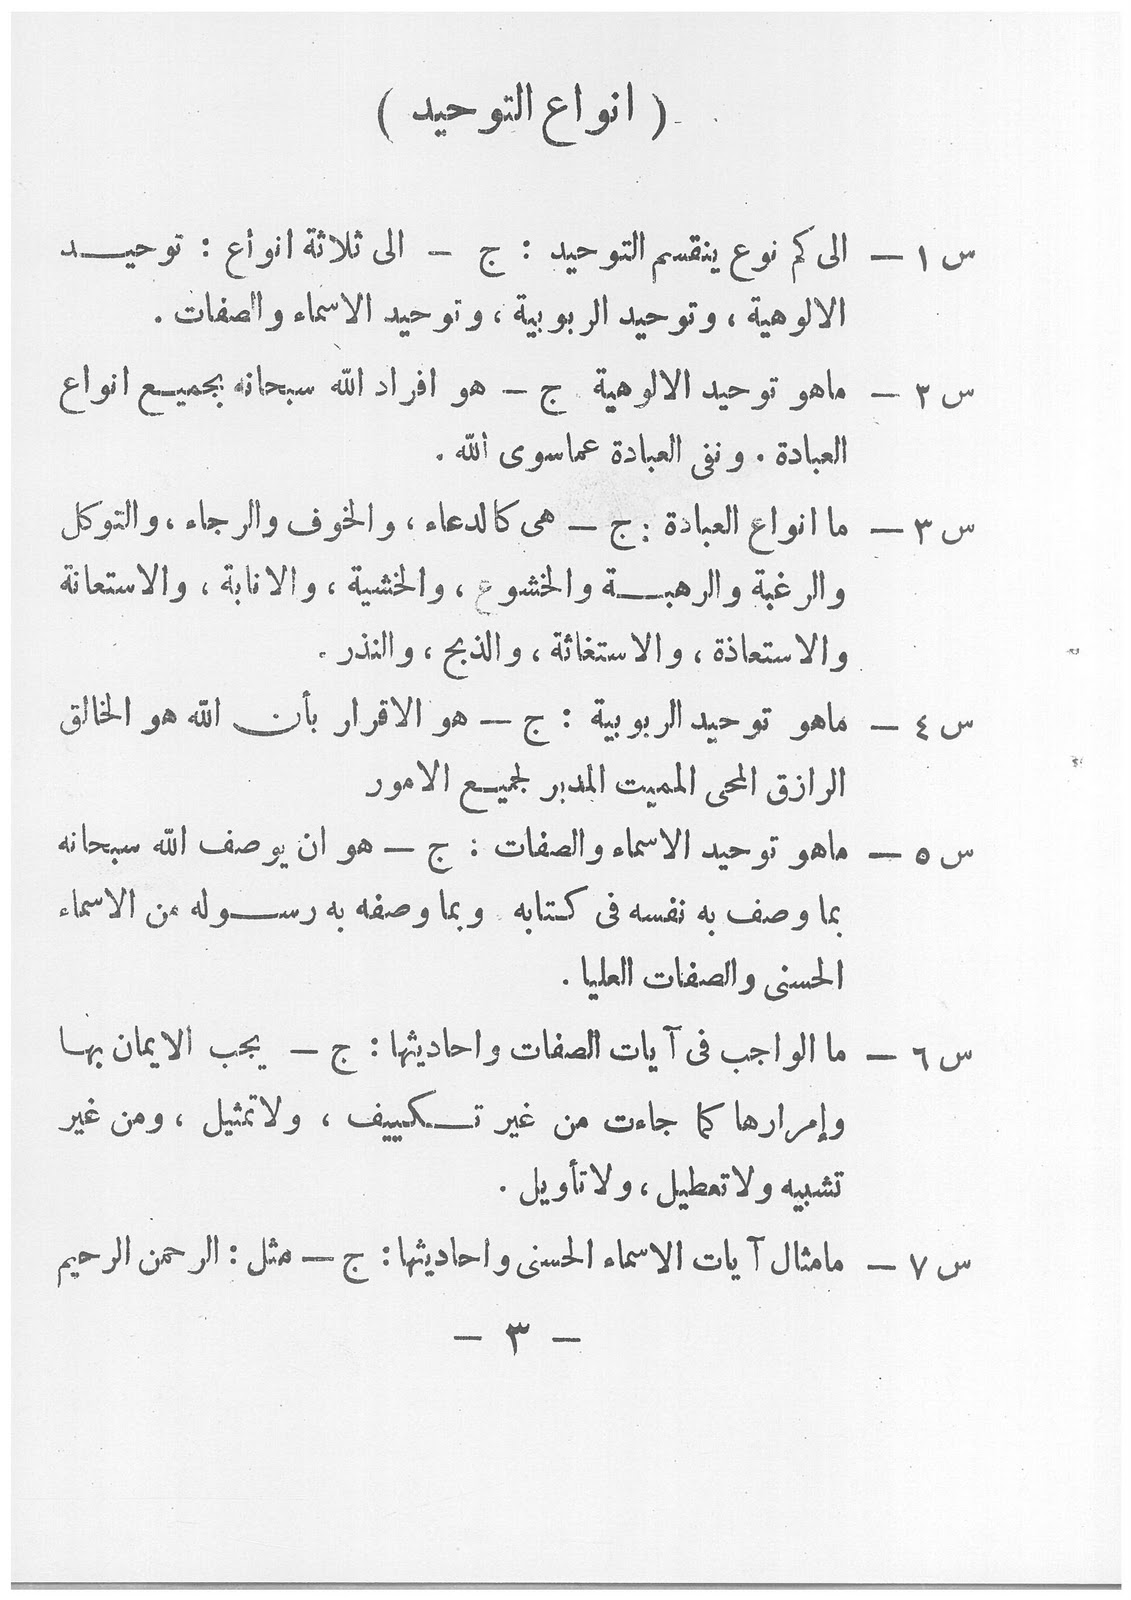 ( انواع التوحيد )
س ١ – الى كم نوع ينقسم التوحيد : ج – الى ثلاثة انواع : توحيد
الالوهية ، وتوحيد الربوبية ، وتوحيد الاسماء والصفات .
س ٣ – ماهو توحيد الالوهية ج – هو افراد الله سبحانه بجميع انواع
العبادة . ونفى العبادة عماسوى الله .
س ٣ – ما انواع العبادة : ج – هى كالدعاء ، والخوف والرجاء ، والتوكل
والرغبة والرهبة والخشوع ، والخشية ، والانابة ، والاستعانة
والاستعاذة ، والاستغاثة ، والذبح ، والنذر .
س ٤ – ماهو توحيد الربوبية : ج – هو الاقرار بأن الله هو الخالق
الرازق المحى المميت المدبر لجميع الامور
س ٥ – ماهو توحيد الاسماء والصفات : ج – هو ان يوصف الله سبحانه
بما وصف به نفسه فى كتابه وبما وصفه به رسوله من الاسماء
الحسنى والصفات العليا .
س ٦ – ما الواجب فى آيات الصفات واحاديثها : ج – يجب الايمان بها
وإمرارها كما جاءت من غير تكييف ، ولاتمثيل ، ومن غير
تشبيه ولاتعطيل ، ولاتأويل .
س ٧ – مامثال آيات الاسماء الحسنى واحاديثها : ج – مثل : الرحمن الرحيم
– ٣ –